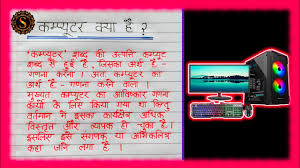 S
कम्प्यूटर क्या है ?
'कम्प्यूटर' शब्द की उत्पत्ति कम्प्यूट
शब्द से हुई है , जिसका अर्थ है -
गणना करना । अतः कम्प्यूटर का
अर्थ है - गणना करने वाला
मुख्यतः कम्प्यूटर का आविष्कार गणना
कार्यो के लिए किया गया था किन्तु
वर्तमान में इसका कार्यक्षेत्र अधिक
विस्तृत और व्यापक हो चुका है ।
इसलिए इसे संगणक या अभिकलित्र
कहा जाने लगा है